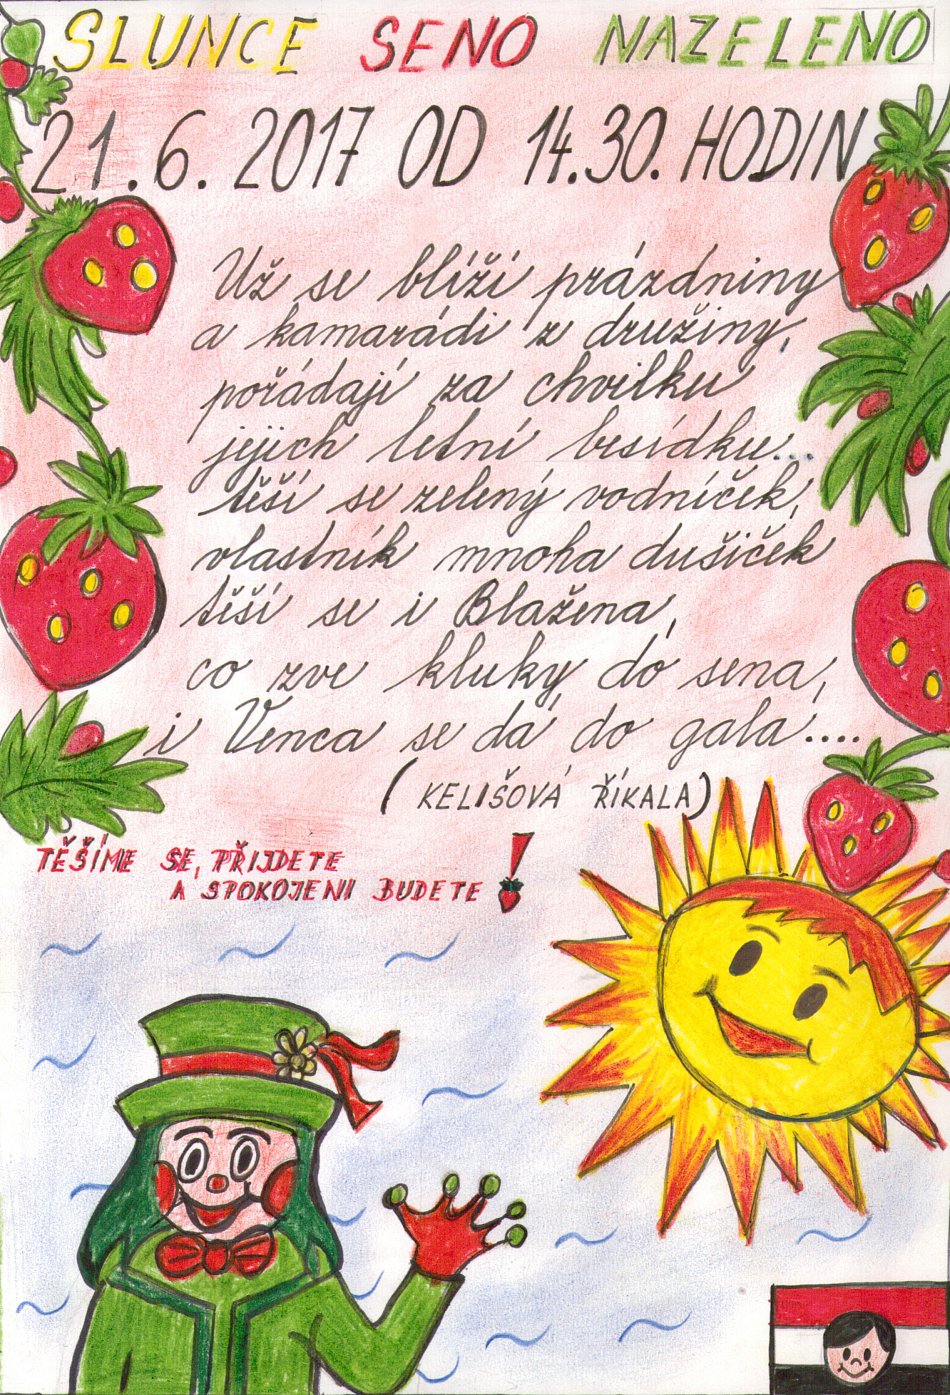 SLUNCE SENO NAZELENO
21.6.2017 OD 14.30. HODIN
Už se blíží prázdniny
a kamarádi z družiny,
pořádají za chvilku
jejich letní besídku...
těší se zelený vodníček,
vlastník mnoha dušiček
těší se i Blažena,
co zve kluky do sena,
i Venca se dá do gala....
(KELIŠOVÁ ŘÍKALA)
TĚŠÍME SE, PŘIJDETE
A SPOKOJENI BUDETE!